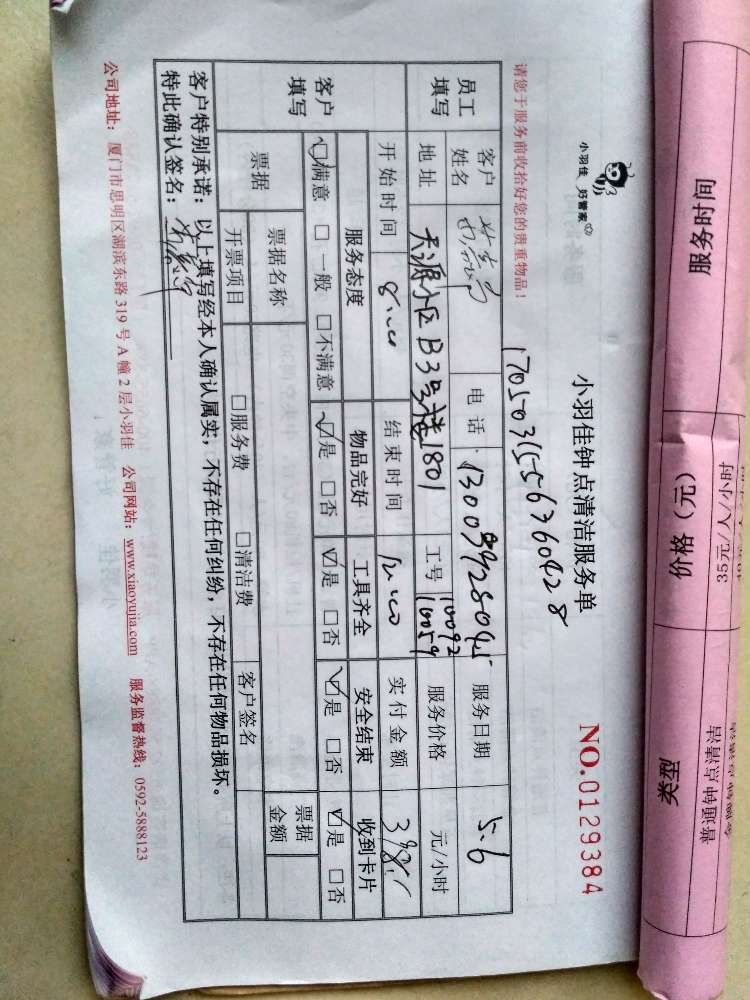 小羽佳 好管家
小羽佳钟点清洁服务单
NO.0129384
请您于服务前收拾好您的贵重物品！
1705031556360428
员工填写
客户姓名
电话
服务日期 5.6
地址 天源小区B3号楼1801
工号 10092 10059
服务价格 元/小时
客户填写
开始时间
结束时间
实付金额
服务态度 物品完好 工具齐全 安全结束 收到卡片
满意 一般 不满意 是 否 是 否 是 否 是 否
票据 票据名称 客户签名 票据金额
开票项目 服务费 清洁费
客户特别承诺：以上填写经本人确认属实，不存在任何纠纷，不存在任何物品损坏。
特此确认签名：
公司地址：厦门市思明区湖滨东路 319 号 A 幢 2 层小羽佳 公司网站：www.xiaoyujia.com 服务监督热线：0592-5888123
类型 价格（元） 服务时间
普通钟点清洁 35元/人/小时